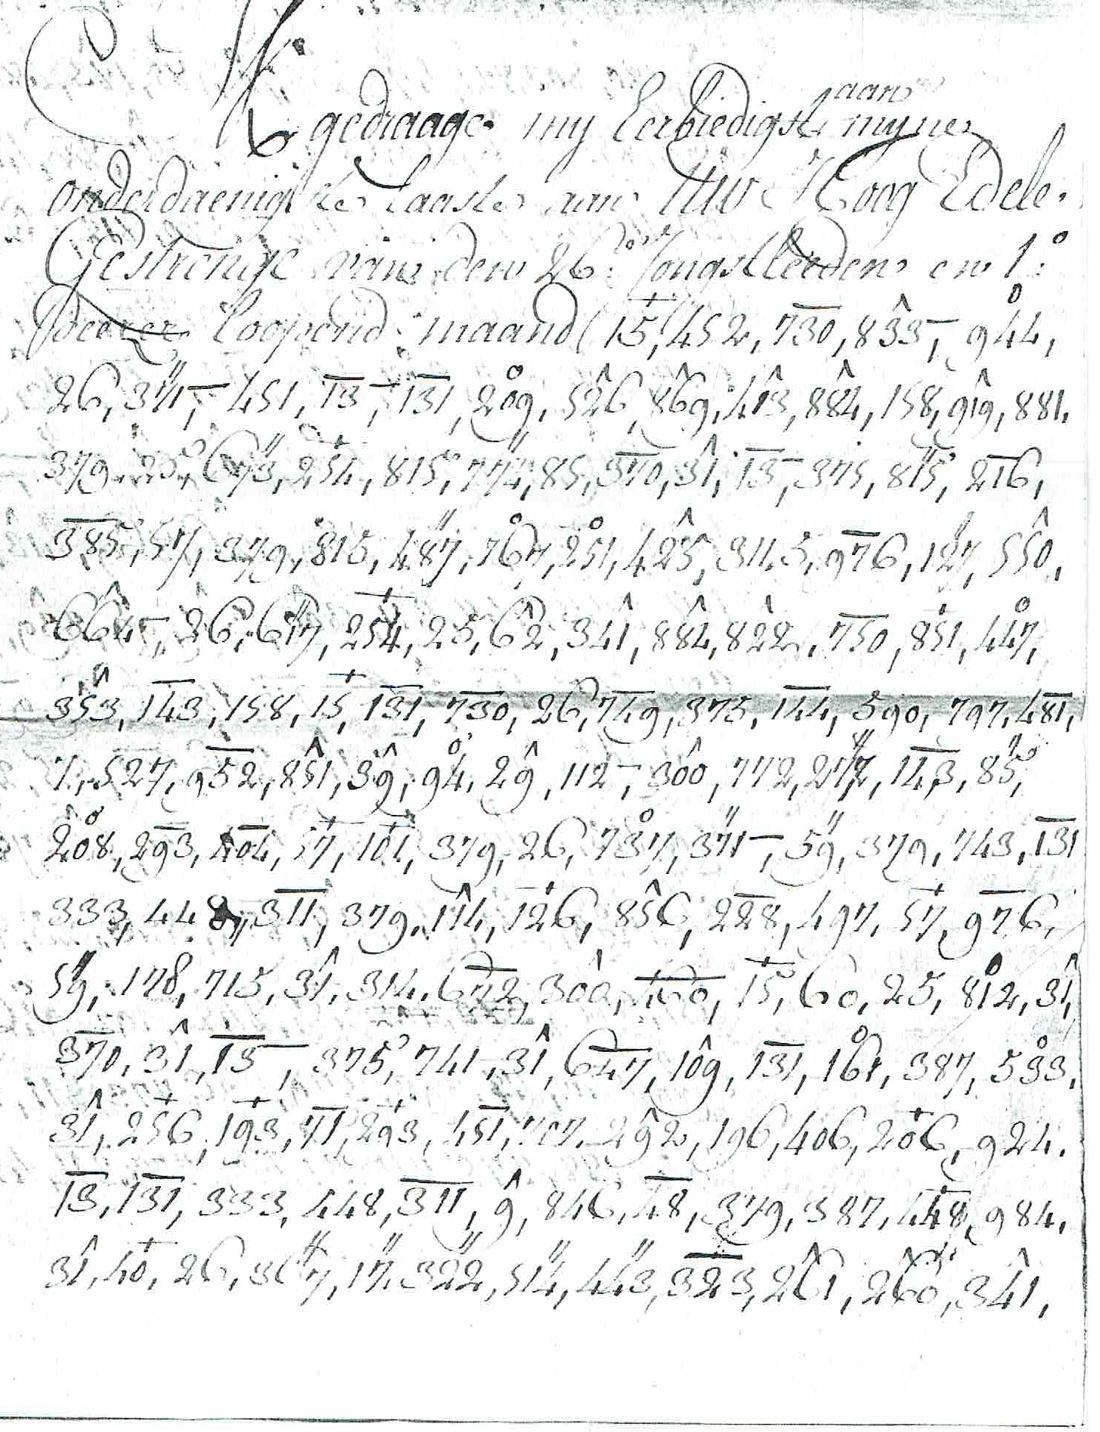 aan
Ik gedraage my Eerbiedigst myne
onderdaenigste Laaste aan Uw Hoog Edele
Gestrenge van den 26: Jongstleeden en 1°:
deezer loopend maand (15, 452, 730, 833, - 944,
26, 371, - 451, 13, - 131, 209, 526, 869, 413, 884, 158, 919, 881.
379, 25, 673, 254, 815, 774, 85, 370, 31, 13, - 375, 815, 216,
385, 57, 379, 815, 487, 767, 251, 425, 311, 5, 976, 127, 550,
664, - 26, 617, 254, 25, 62, 341, 884, 822, 750, 851, 447,
353, 143, 158, 15, 131, 730, 26, 749, 375, 144, 590, 797, 481,
7, 527, 952, 851, 39, 94, 29, 112, - 300, 772, 277, 143, 85,
208, 293, 404, 57, 101, 379, 26, 737, 371, - 59, 379, 743, 131
333, 448, 311, 379, 114, 126, 856, 228, 497, 57, 976,
59, 178, 715, 31, 314, 672, 300, 160, 15, 60, 25, 812, 31,
370, 31, 13, - 375, 741, 31, 647, 109, 131, 161, 387, 533,
31, 256, 193, 71, 293, 451, 707, 292, 196, 406, 206, 924.
13, 131, 333, 448, 311, 9, 846, 48, 379, 387, 448, 984,
31, 40, 26, 367, 17, 322, 514, 443, 323, 261, 260, 341,